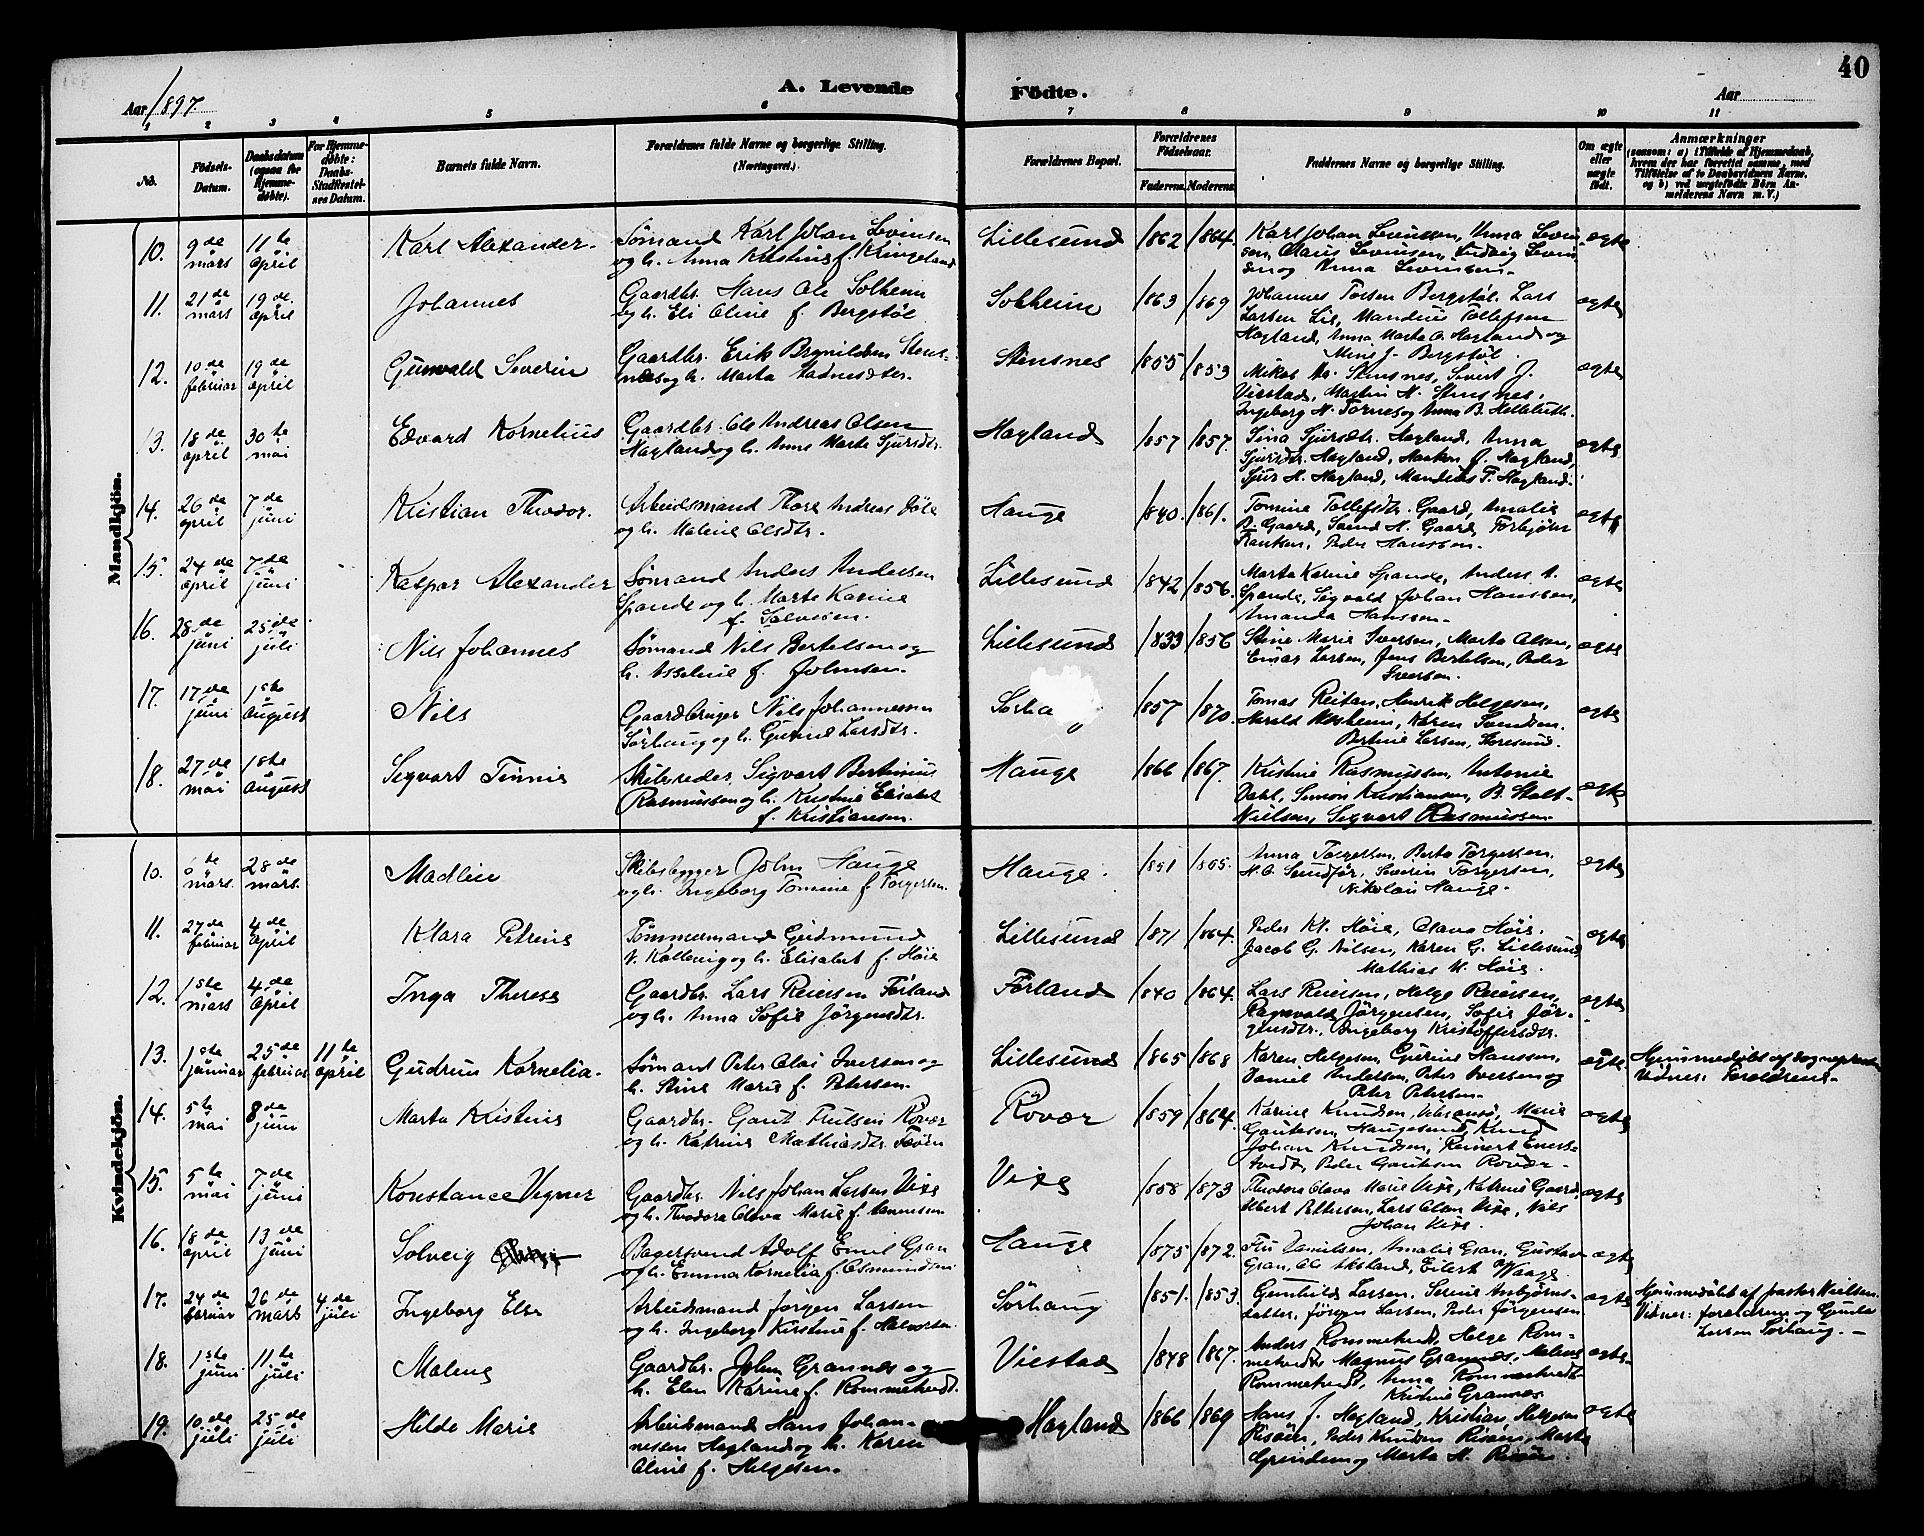 40
A. Levende Födte.
Aar 1897.
Aar
1 2 3 4 5 6 7 8 9 10 11
No.
Födsels-Datum.
Daabsdatum (ogsaa for Hjemmedöbte).
For Hjemmedöbte: Daabs-Stadfæstelses Datum.
Barnets fulde Navn.
Forældrenes fulde Navne og borgerlige Stilling. (Næringsvei.)
Forældrenes Bopæl.
Forældrenes Födselsaar.
Faderens. Moderens.
Faddernes Navne og borgerlige Stilling.
Om ægte eller uægte födt.
Anmærkninger
(saasom: a) i Tilfælde af Hjemmedaab, hvem der har forrettet samme, med Tilföielse af to Daabsvidners Navne. og b) ved uægtefödte Börn Anmelderens Navn m. V.)
Mandkjön.
10. 9de mars 11te april Karl Alexander. Sömand Karl Johan Levinsen
og h. Anna Kristine f. Kringeland Lillesund 1862 1864. Karl Johan Levinsen, Anna Levinsen, Claus Levinsen, Ludvig Levinsen og Anna Levinsen. ægte
11. 21de mars 19de april Johannes Gaardbr. Hans Ole Solheim
og h. Eli Oline f. Bergstöl Solheim 1863 1869 Johannes Torsen Bergstöl, Lars
Larsen Lie, Mandius Tollefsen
Hagland, Anna Marta O. Hagland og
Mine J. Bergstöl. ægte
12. 10de februar 19de april Gunvald Severin Gaardbr. Erik Brynildsen Stens-
næs og h. Marta Stensnes 1855 1853 Mikal Stensnes, Sivert J.
Viestad, Martin H. Stensnes,
Ingeborg N. Tornes og Anna B. ægte
13. 18de april 30te mai Edvard Kornelius Gaardbr. Ole Andreas Olsen
Hagland og h. Anne Marta Sjursdtr. Hagland 1857 1857. Sina Sjursdtr. Hagland, Anna
Sjursdtr. Hagland, Haaken J. Hagland,
Sjur H. Hagland, Mandius T. Hagland. ægte
14. 26de april 7de juni Kristian Theodor. Arbeidsmand Thore Andreas
og h. Maline Olsdtr. Hauge 1840 1861. Tomine Tollefsdtr. Gaard, Amalie
Gaard, Svend H. Gaard, Torbjörn
Peder Hanssen. ægte
15. 24de april 7de juni Kaspar Alexander Sömand Anders Andersen
Spande og h. Marta Karine
f. Lillesund 1842 1856. Marta Karine Spande, Anders A.
Spande, Sigvald Johan Hanssen,
Amanda Hanssen. ægte
16. 28de juni 25de juli Nils Johannes Sömand Nils Bertelsen og
h. Asseline f. Johnsen. Lillesund 1833 1856 Stine Marie Iversen, Marta Olsen,
Einar Larsen, Jens Bertelsen, Peder
Iversen. ægte
17. 17de juni 1ste august Nils Gaardbruger Nils Johannessen
Sörhaug og h. Gurine Larsdtr. Sörha g 1857 1870. Tomas Reitan, Henrik Helgesen,
Harald Karen Svendsen.
Bertine Larsen, Storesund. ægte
18. 27de mai 1ste august Sigvart Tinnis Skibsreder Sigvart Bertinius
Rasmussen og h. Kristine Elisabet
f. Kristiansen. Hauge 1866 1867. Kristine Rasmussen, Antonie
Dahl, Simon Kristiansen, B. Stolt-
Nielsen, Sigvart Rasmussen. ægte
Kvindekjön.
10. te mars 28de mars Madlin Skibsbygger John Hauge
og h. Ingeborg Tomine f. Torgersen. Hauge. 1851 1855. Anna Torgersen, Berta Torgersen,
H. O. Sundför, Severin Torgersen,
Nikolai Hauge. ægte
11. 27de februar 4de april Klara Petrine Tömmermand Gudmund
N. Kallevig og h. Elisabet f. Höie Lillesund 1871 1864. Peder Kl. Höie, Olava Höie.
Jacob G. Nilsen, Karen G. Lillesund
Mathias K. Höie. ægte
12. 1ste mars 4de april Inga Therese Gaardbr. Lars Reiersen Förland
og h. Anna Sofie Jörgensdtr. Förland 1840 1864. Lars Reiersen, Helge Reiersen,
Ragnvald Jörgensen, Sofie Jör-
gensdtr. Ingeborg Kristoffersdtr. ægte
13. 1ste januar 25de februar 11te april Gudrun Kornelia. Sömand Peter Olai Iversen og
h. Stine Marie f. Petersen. Lillesund 1865 1868 Karen Helgesen, Gurine Hanssen,
Daniel Andersen, Peter Iversen og
Peter Petersen. ægte. Hjemmedöbt af sognepresten
Vidner: Forældrene.
14. 5te mai 8de juni Marta Kristine Gaardbr. Gaut Rövær
og h. Katrine Mathiasdtr. Rövær 1859 1864. Karine Knudsen, Marie
Gautesen, Haugesund, Knud
Johan Knudsen, Reinert
Peder Gautesen Rövær. ægte
15. 5te mai 7de juni Konstance Vigner Gaardbr. Nils Johan Larsen Vixe
og h. Theodora Olava Marie f. Vixe 1858 1873 Theodora Olava Marie Vixe, Katrine Gaard.
Albert Pettersen, Lars Olsen Vixe, Nils
Johan Vixe. ægte
16. 18de april 13de juni Solveig Bagersvend Adolf Emil Gran
og h. Emma Kornelia f. Osmundsen Hauge 1875 1872. Fru Danielsen, Amalie Gran, Gustav
Gran, Ole Eilert Waage. ægte
17. 24de februar 26de mars 4de juli Ingeborg Else Arbeidsmand Jörgen Larsen
og h. Ingeborg Kirstine f. Halvorsen. Sörhaug 1851. 1853. Gunhild Larsen. Serine Asbjörns-
datter, Jörgen Larsen, Peder Jörgensen ægte Hjemmedöbt af pastor Nielsen.
Vidner: forældrene og Gunla
Larsen Sörhaug.
18. 1ste juni 11te juli Malene Gaardbr. John Grannæs og
h. Elen Karine f. Rommetvedt. Viestad 1848 1867. Anders Rommetvedt, Helge Rom-
metvedt, Magnus Grannæs, Malene
Rommetvedt, Anna Rommetvedt
Kristine Grannæs ægte
19. 10de juli 25de juli Hilde Marie Arbeidsmand Hans Johan-
nessen Hagland og h. Karen
Oline f. Helgesen. Hagland 1866 1869 Hans J. Hagland, Kristian Helgesen
Risöen, Peder Knudsen Risöen, Marta
Grinden og Marta H. Risöen. ægte